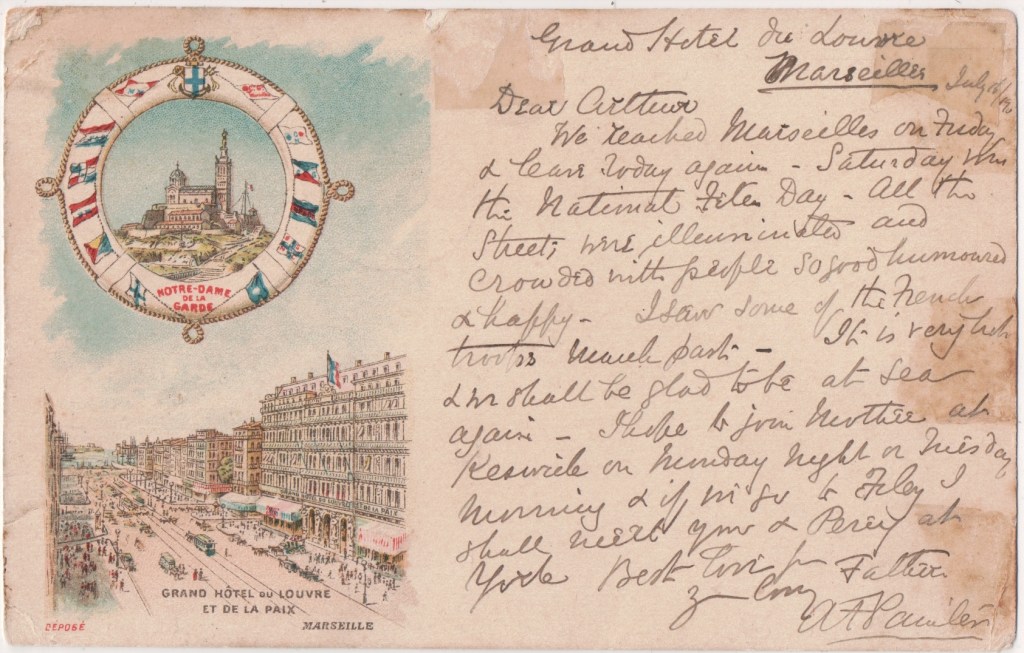 NOTRE-DAME
DE LA
GARDE
GRAND HÔTEL DU LOUVRE
ET DE LA PAIX
MARSEILLE
DÉPOSÉ
Grand Hotel du Louvre
Marseilles July
Dear Arthur
We reached Marseilles on Friday
& leave today again - Saturday was
the National Fete Day - All the
Streets were illuminated and
crowded with people so good humoured
& happy - I saw some of the French
troops march past - It is very hot
& we shall be glad to be at sea
again - I hope to join Mother at
Keswick on Monday night or Tuesday
morning & if we go to Filey I
shall meet you & Percy at
York Best love fr
Father